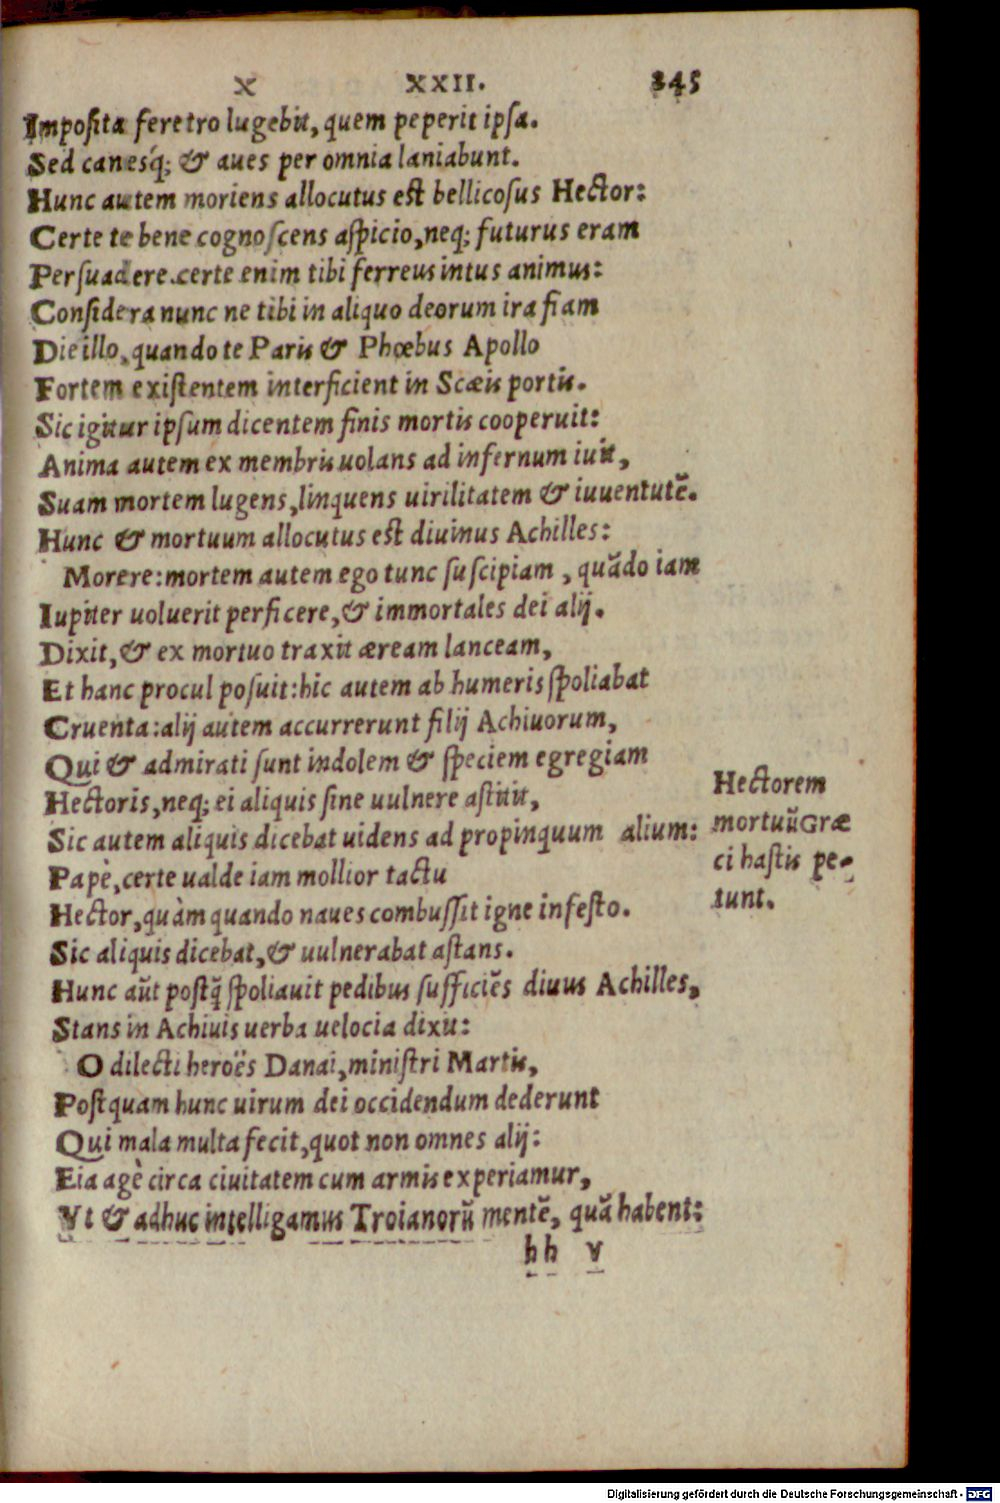 X XXII. 345
Imposita feretro lugebit, quem peperit ipsa.
Sed canesq́; & aues per omnia laniabunt.
Hunc autem moriens allocutus est bellicosus Hector:
Certe te bene cognoscens aspicio, neq; futurus eram
Persuadere. certe enim tibi ferreus intus animus:
Considera nunc ne tibi in aliquo deorum ira fiam
Die illo, quando te Paris & Phœbus Apollo
Fortem existentem interficient in Scæis portis.
Sic igitur ipsum dicentem finis mortis cooperuit:
Anima autem ex membris uolans ad infernum iuit,
Suam mortem lugens, linquens uirilitatem & iuuentutē.
Hunc & mortuum allocutus est diuinus Achilles:
Morere: mortem autem ego tunc suscipiam, quādo iam
Iupiter uoluerit perficere, & immortales dei alij.
Dixit, & ex mortuo traxit æream lanceam,
Et hanc procul posuit: hic autem ab humeris spoliabat
Cruenta: alij autem accurrerunt filij Achiuorum,
Qui & admirati sunt indolem & speciem egregiam
Hectoris, neq; ei aliquis sine uulnere astitit,
Sic autem aliquis dicebat uidens ad propinquum alium:
Papè, certe ualde iam mollior tactu
Hector, quàm quando naues combussit igne infesto.
Sic aliquis dicebat, & uulnerabat astans.
Hunc aūt postq̄ spoliauit pedibus sufficiēs diuus Achilles,
Stans in Achiuis uerba uelocia dixit:
O dilecti heroës Danai, ministri Martis,
Postquam hunc uirum dei occidendum dederunt
Qui mala multa fecit, quot non omnes alij:
Eia agè circa ciuitatem cum armis experiamur,
Vt & adhuc intelligamus Troianorū mentē, quā habent:
hh v
Hectorem
mortuū Græ
ci hastis pe-
tunt.
Digitalisierung gefördert durch die Deutsche Forschungsgemeinschaft - DFG